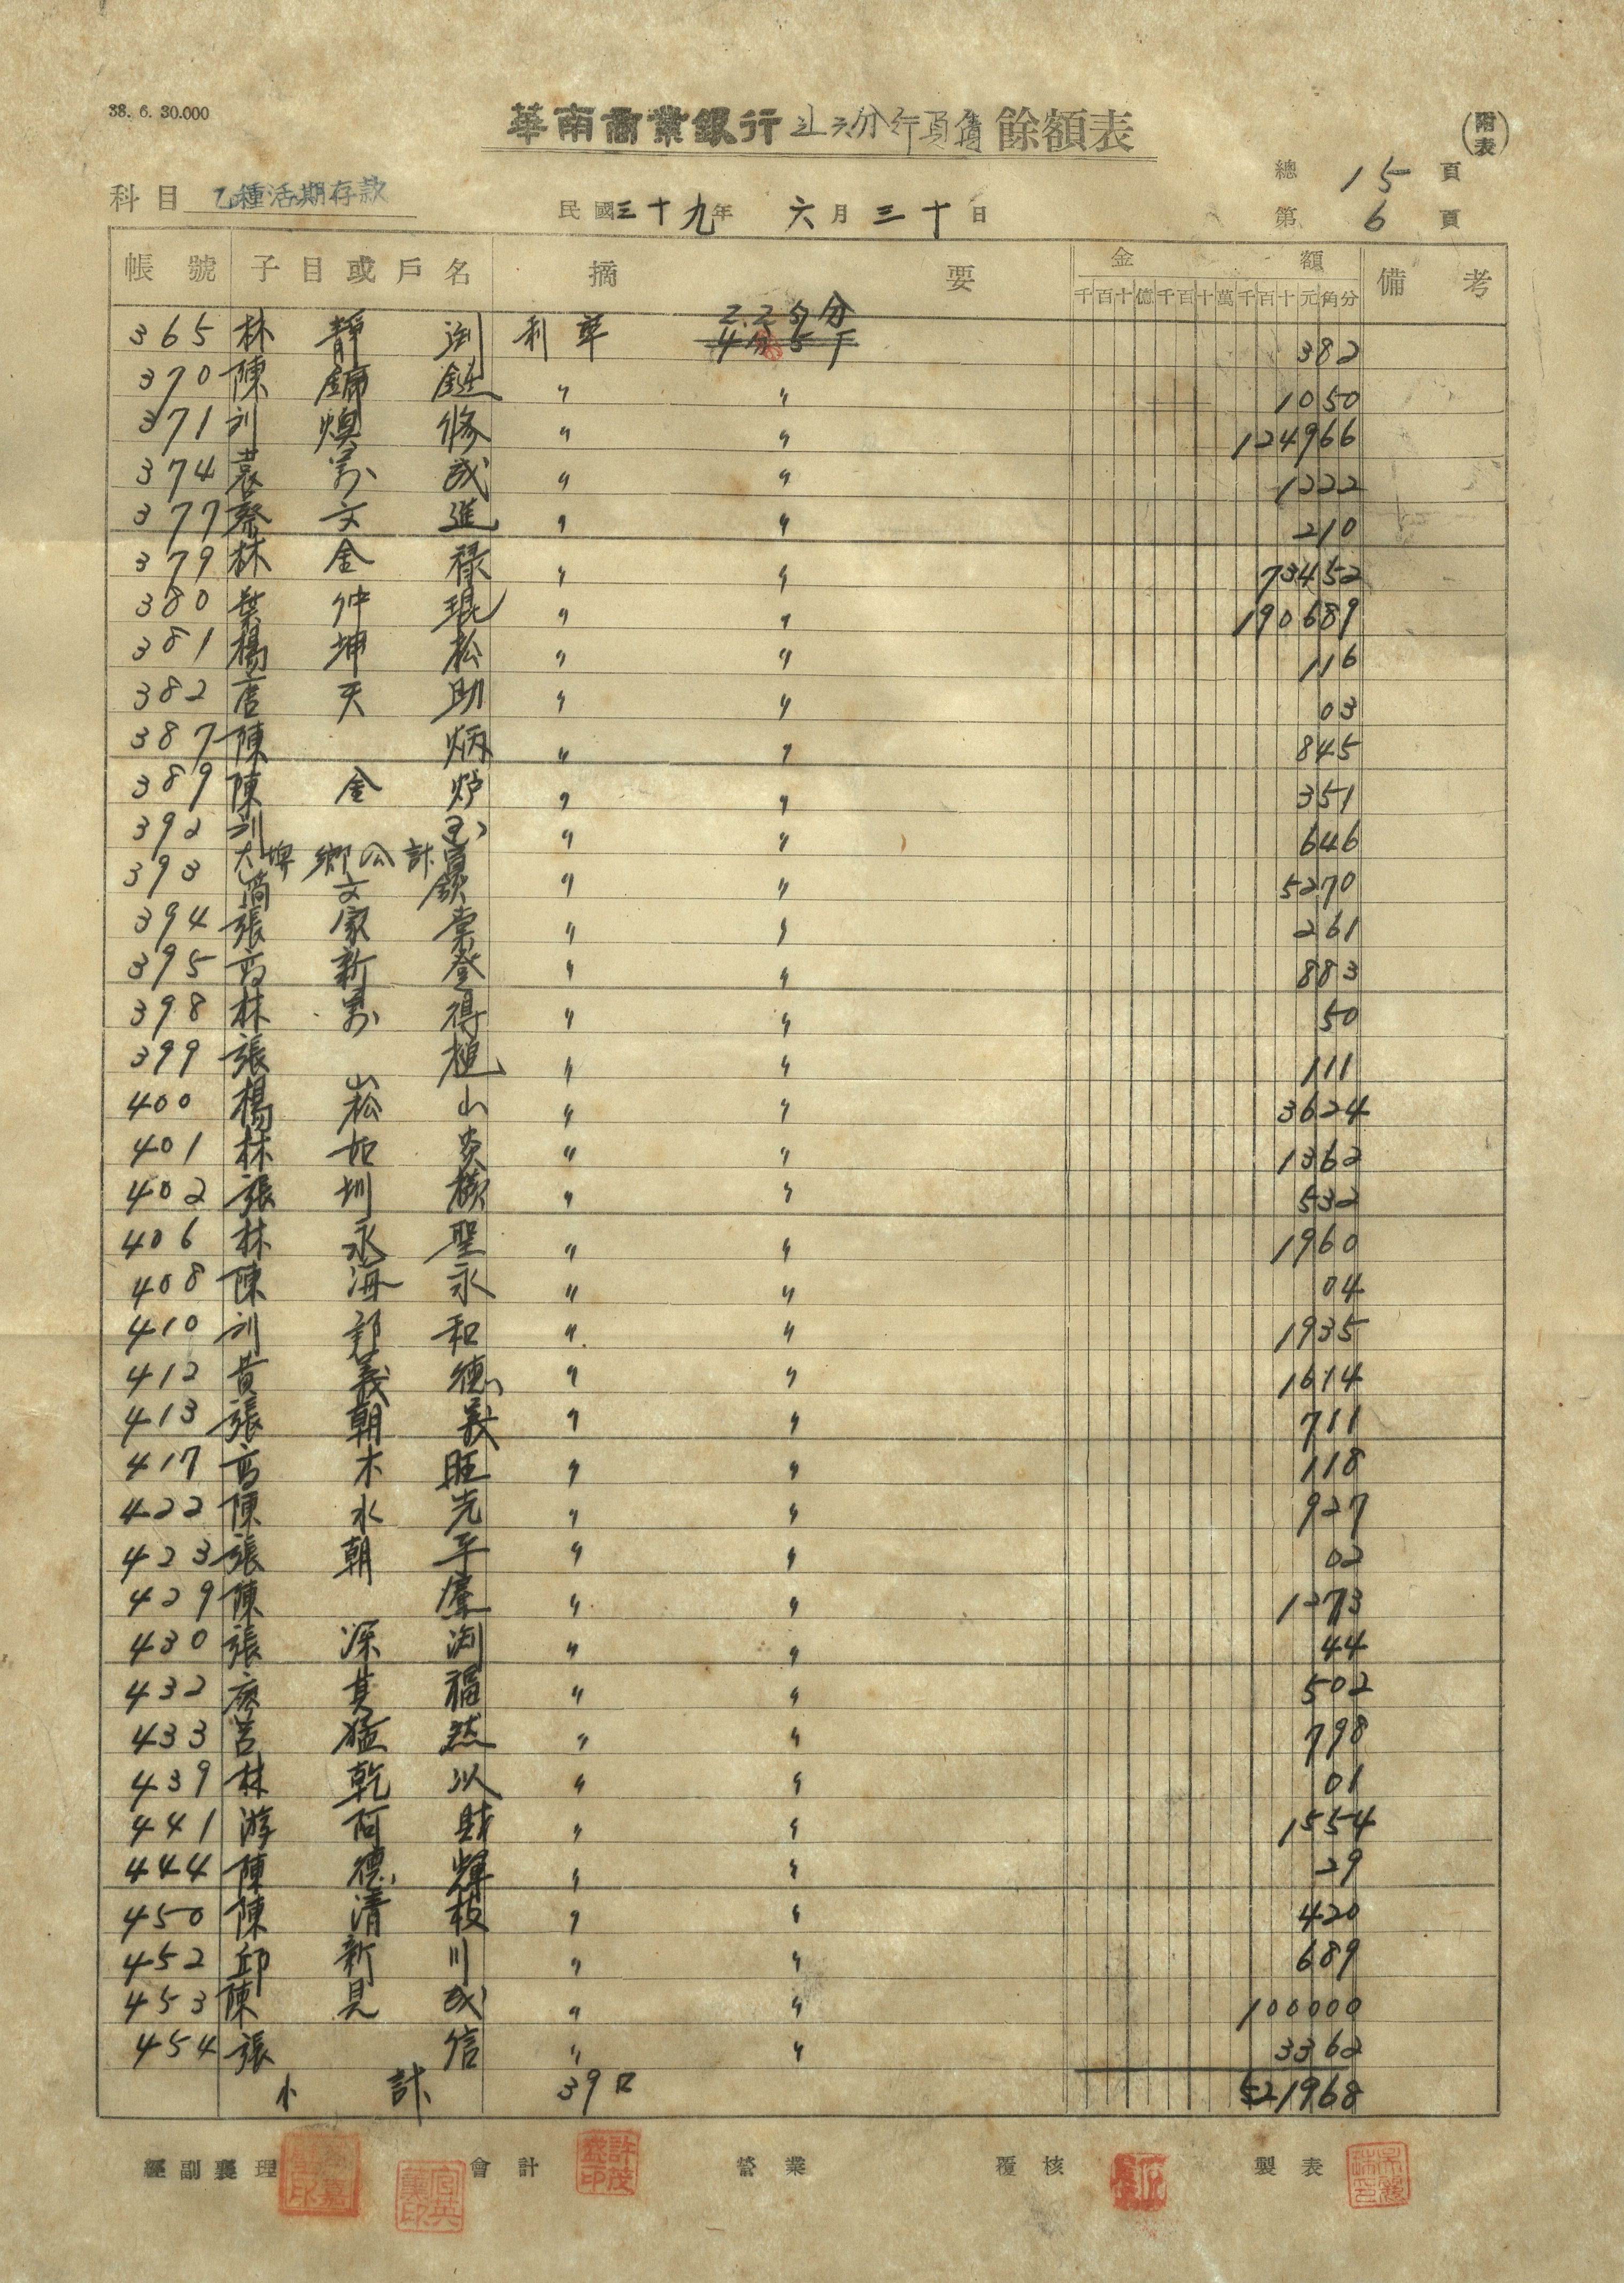 38. 6. 30.000
華南商業銀行斗六分行頁傭餘額表
(附表)
總 15 頁
科目 乙種活期存款
民國三十九年 六月三十日
第 6 頁
帳號 子目或戶名 摘要 金額 備考
千百十億千百十萬千百十元角分
2.2分
365 林靜渕 利率 4分5厂 382
370 陳鏑鎚 〃 〃 1050
371 刘煥修 〃 〃 124966
374 袁萬成 〃 〃 1222
377 蔡文進 〃 〃 210
379 林金祿 〃 〃 73452
380 葉仲琨 〃 〃 190689
381 楊坤松 〃 〃 116
382 唐天助 〃 〃 03
387 陳炳 〃 〃 845
389 陳金炉 〃 〃 351
392 刘 〃 〃 646
大埤鄉公計
393 簡文 〃 〃 5270
394 張家棠 〃 〃 261
395 高新登 〃 〃 883
398 林萬得 〃 〃 50
399 張槌 〃 〃 111
400 楊崧山 〃 〃 3624
401 林如炎 〃 〃 1362
402 張圳 〃 〃 532
406 林永聖 〃 〃 1960
408 陳海永 〃 〃 04
410 刘 和 〃 〃 1935
412 黃義德 〃 〃 1614
413 張朝 〃 〃 711
417 高木旺 〃 〃 118
422 陳水光 〃 〃 927
423 張朝平 〃 〃 02
429 陳 〃 〃 1273
430 張深渕 〃 〃 44
432 廖其福 〃 〃 502
433 猛然 〃 〃 798
439 林乾以 〃 〃 01
441 游阿財 〃 〃 1554
444 陳德輝 〃 〃 29
450 陳清枝 〃 〃 420
452 邱新川 〃 〃 689
453 陳見成 〃 〃 100000
454 張信 〃 〃 3362
小計 39口 521968
經副襄理 會計 營業 覆核 製表
許茂盛印